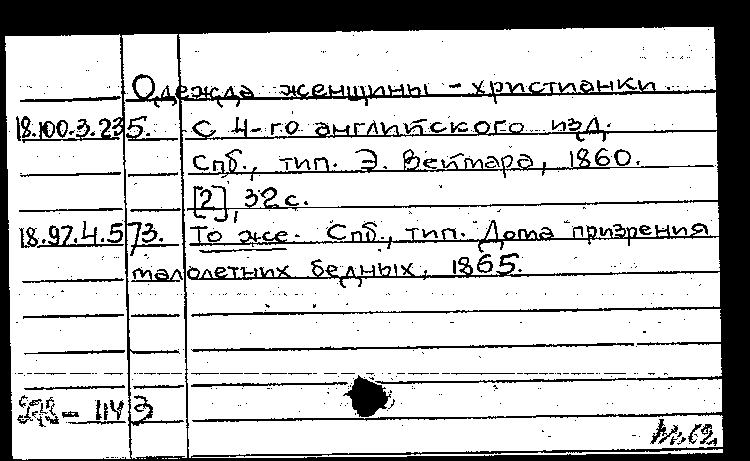 Одежда женщины - христианки.
18.100.3.235. С 4-го английского изд.
Спб., тип. Э. Веймара, 1860.
[2], 32 с.
18.97.4.573. То же. Спб., тип. Дома призрения
малолетних бедных, 1865.
1143